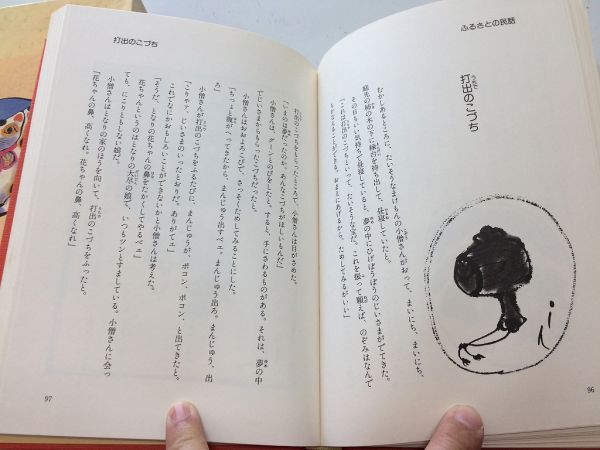 ふるさとの民話
打出のこづち
むかしあるところに、たいそうなまけもんの小僧さんがおって、まいにち、まいにち、
庭先の姉の木の下に縁台を持ち出して、昼寝していたと。
その日もいい気持ちで昼寝していると、夢の中にひげぼうぼうのじいさまがでてきた。
「これは打出のこづちといって、たいそうな宝だ。これを振って願えば、のぞみはなんで
もかなえることができる。おまえにあげるから、ためしてみるがいい」
96
打出のこづち
打出のこづちをもらったところで、小僧さんは目がさめた。
「いまのは夢だったのか。あんなこづちがほしいもんだ」
小僧さんは、グーンとのびをした。すると、手にさわるものがある。それは、夢の中
でじいさまからもらったこづちだったと。
小僧さんはおおよろこびで、さっそくためしてみることにした。
「ちょっと腹がへってきたから、まんじゅう出すベエ。まんじゅう出ろ。まんじゅう、出
ろ」
小僧さんが打出のこづちをふるたびに、まんじゅうが、ポコン、ポコン、と出てきたと。
「こりゃァ、じいさまのいったとおりだ。ありがてエ」
これでなにかおもしろいことができないかと小僧さんは考えた。
「そうだ、となりの花ちゃんの鼻をたかくしてやるベエ」
花ちゃんというのはとなりの大尽の娘で、いつもツンとすましている。小僧さんに会っ
ても、にこりともしない娘だ。
小僧さんはとなりの家のほうを向いて、打出のこづちをふったと。
「花ちゃんの鼻、高くなれ。花ちゃんの鼻、高くなれ」
97